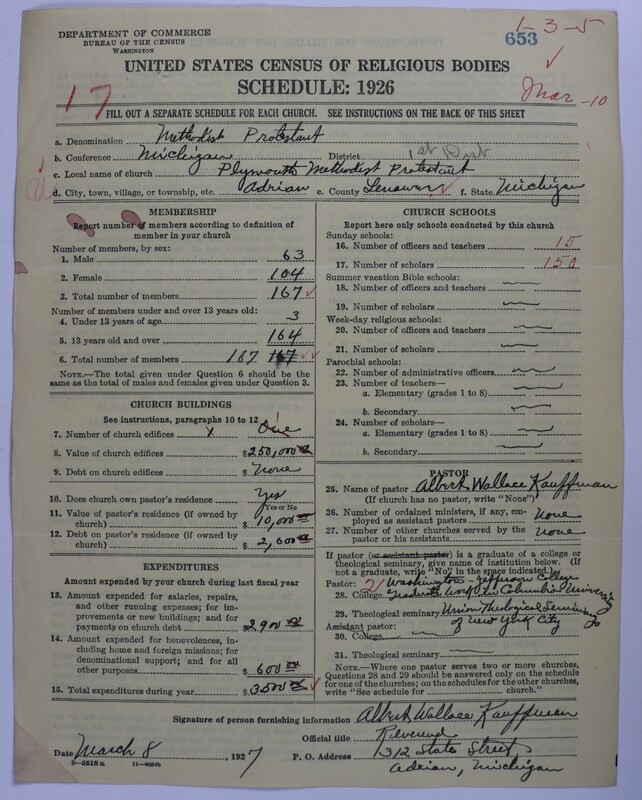 1-3-5
DEPARTMENT OF COMMERCE
BUREAU OF THE CENSUS
WASHINGTON
653
UNITED STATES CENSUS OF RELIGIOUS BODIES
SCHEDULE: 1926
Mar-10
17
FILL OUT A SEPARATE SCHEDULE FOR EACH CHURCH. SEE INSTRUCTIONS ON THE BACK OF THIS SHEET
a. Denomination Methodist Protestant
b. Conference Michigan District 1st Dist
c. Local name of church Plymouth Methodist Protestant
d. City, town, village, or township, etc. Adrian e. County Lenawee f. State Michigan
MEMBERSHIP
Report number of members according to definition of
member in your church
Number of members, by sex:
1. Male 63
2. Female 104
3. Total number of members 167
Number of members under and over 13 years old:
4. Under 13 years of age 3
5. 13 years old and over 164
6. Total number of members 167 167
NOTE.—The total given under Question 6 should be
same as the total of males and females given under Question 3.
CHURCH BUILDINGS
See instructions, paragraphs 10 to 12
7. Number of church edifices One
8. Value of church edifices $250,000
9. Debt on church edifices $None
10. Does church own pastor's residence Yes
Yes or No
11. Value of pastor's residence (if owned by
church) $10,000
12. Debt on pastor's residence (if owned by
church) $2,600
EXPENDITURES
Amount expended by your church during last fiscal year
13. Amount expended for salaries, repairs,
and other running expenses; for im-
provements or new buildings; and for
payments on church debt $2900
14. Amount expended for benevolences, in-
cluding home and foreign missions; for
denominational support; and for all
other purposes $600
15. Total expenditures during year $3500
CHURCH SCHOOLS
Report here only schools conducted by this church
Sunday schools:
16. Number of officers and teachers 15
17. Number of scholars 150
Summer vacation Bible schools:
18. Number of officers and teachers
19. Number of scholars
Week-day religious schools:
20. Number of officers and teachers
21. Number of scholars
Parochial schools:
22. Number of administrative officers
23. Number of teachers—
a. Elementary (grades 1 to 8)
b. Secondary
24. Number of scholars—
a. Elementary (grades 1 to 8)
b. Secondary
PASTOR
25. Name of pastor Albert Wallace Kauffman
(If church has no pastor, write "None")
26. Number of ordained ministers, if any, em-
ployed as assistant pastors None
27. Number of other churches served by the
pastor or his assistants None
If pastor (or assistant pastor) is a graduate of a college or
theological seminary, give name of institution below. (If
not a graduate, write "No" in the space indicated.)
Pastor: Washington-Jefferson College
28. College Graduate work in Columbia University
29. Theological seminary Union Theological Seminary
of New York City
Assistant pastor:
30. College
31. Theological seminary
NOTE.—Where one pastor serves two or more churches,
Questions 28 and 29 should be answered only on the schedule
for one of the churches; on the schedules for the other churches,
write "See schedule for church."
Signature of person furnishing information Albert Wallace Kauffman
Official title Reverend
Date March 8, 1927 P. O. Address 1312 State Street,
8-5518a 11-9664b Adrian, Michigan